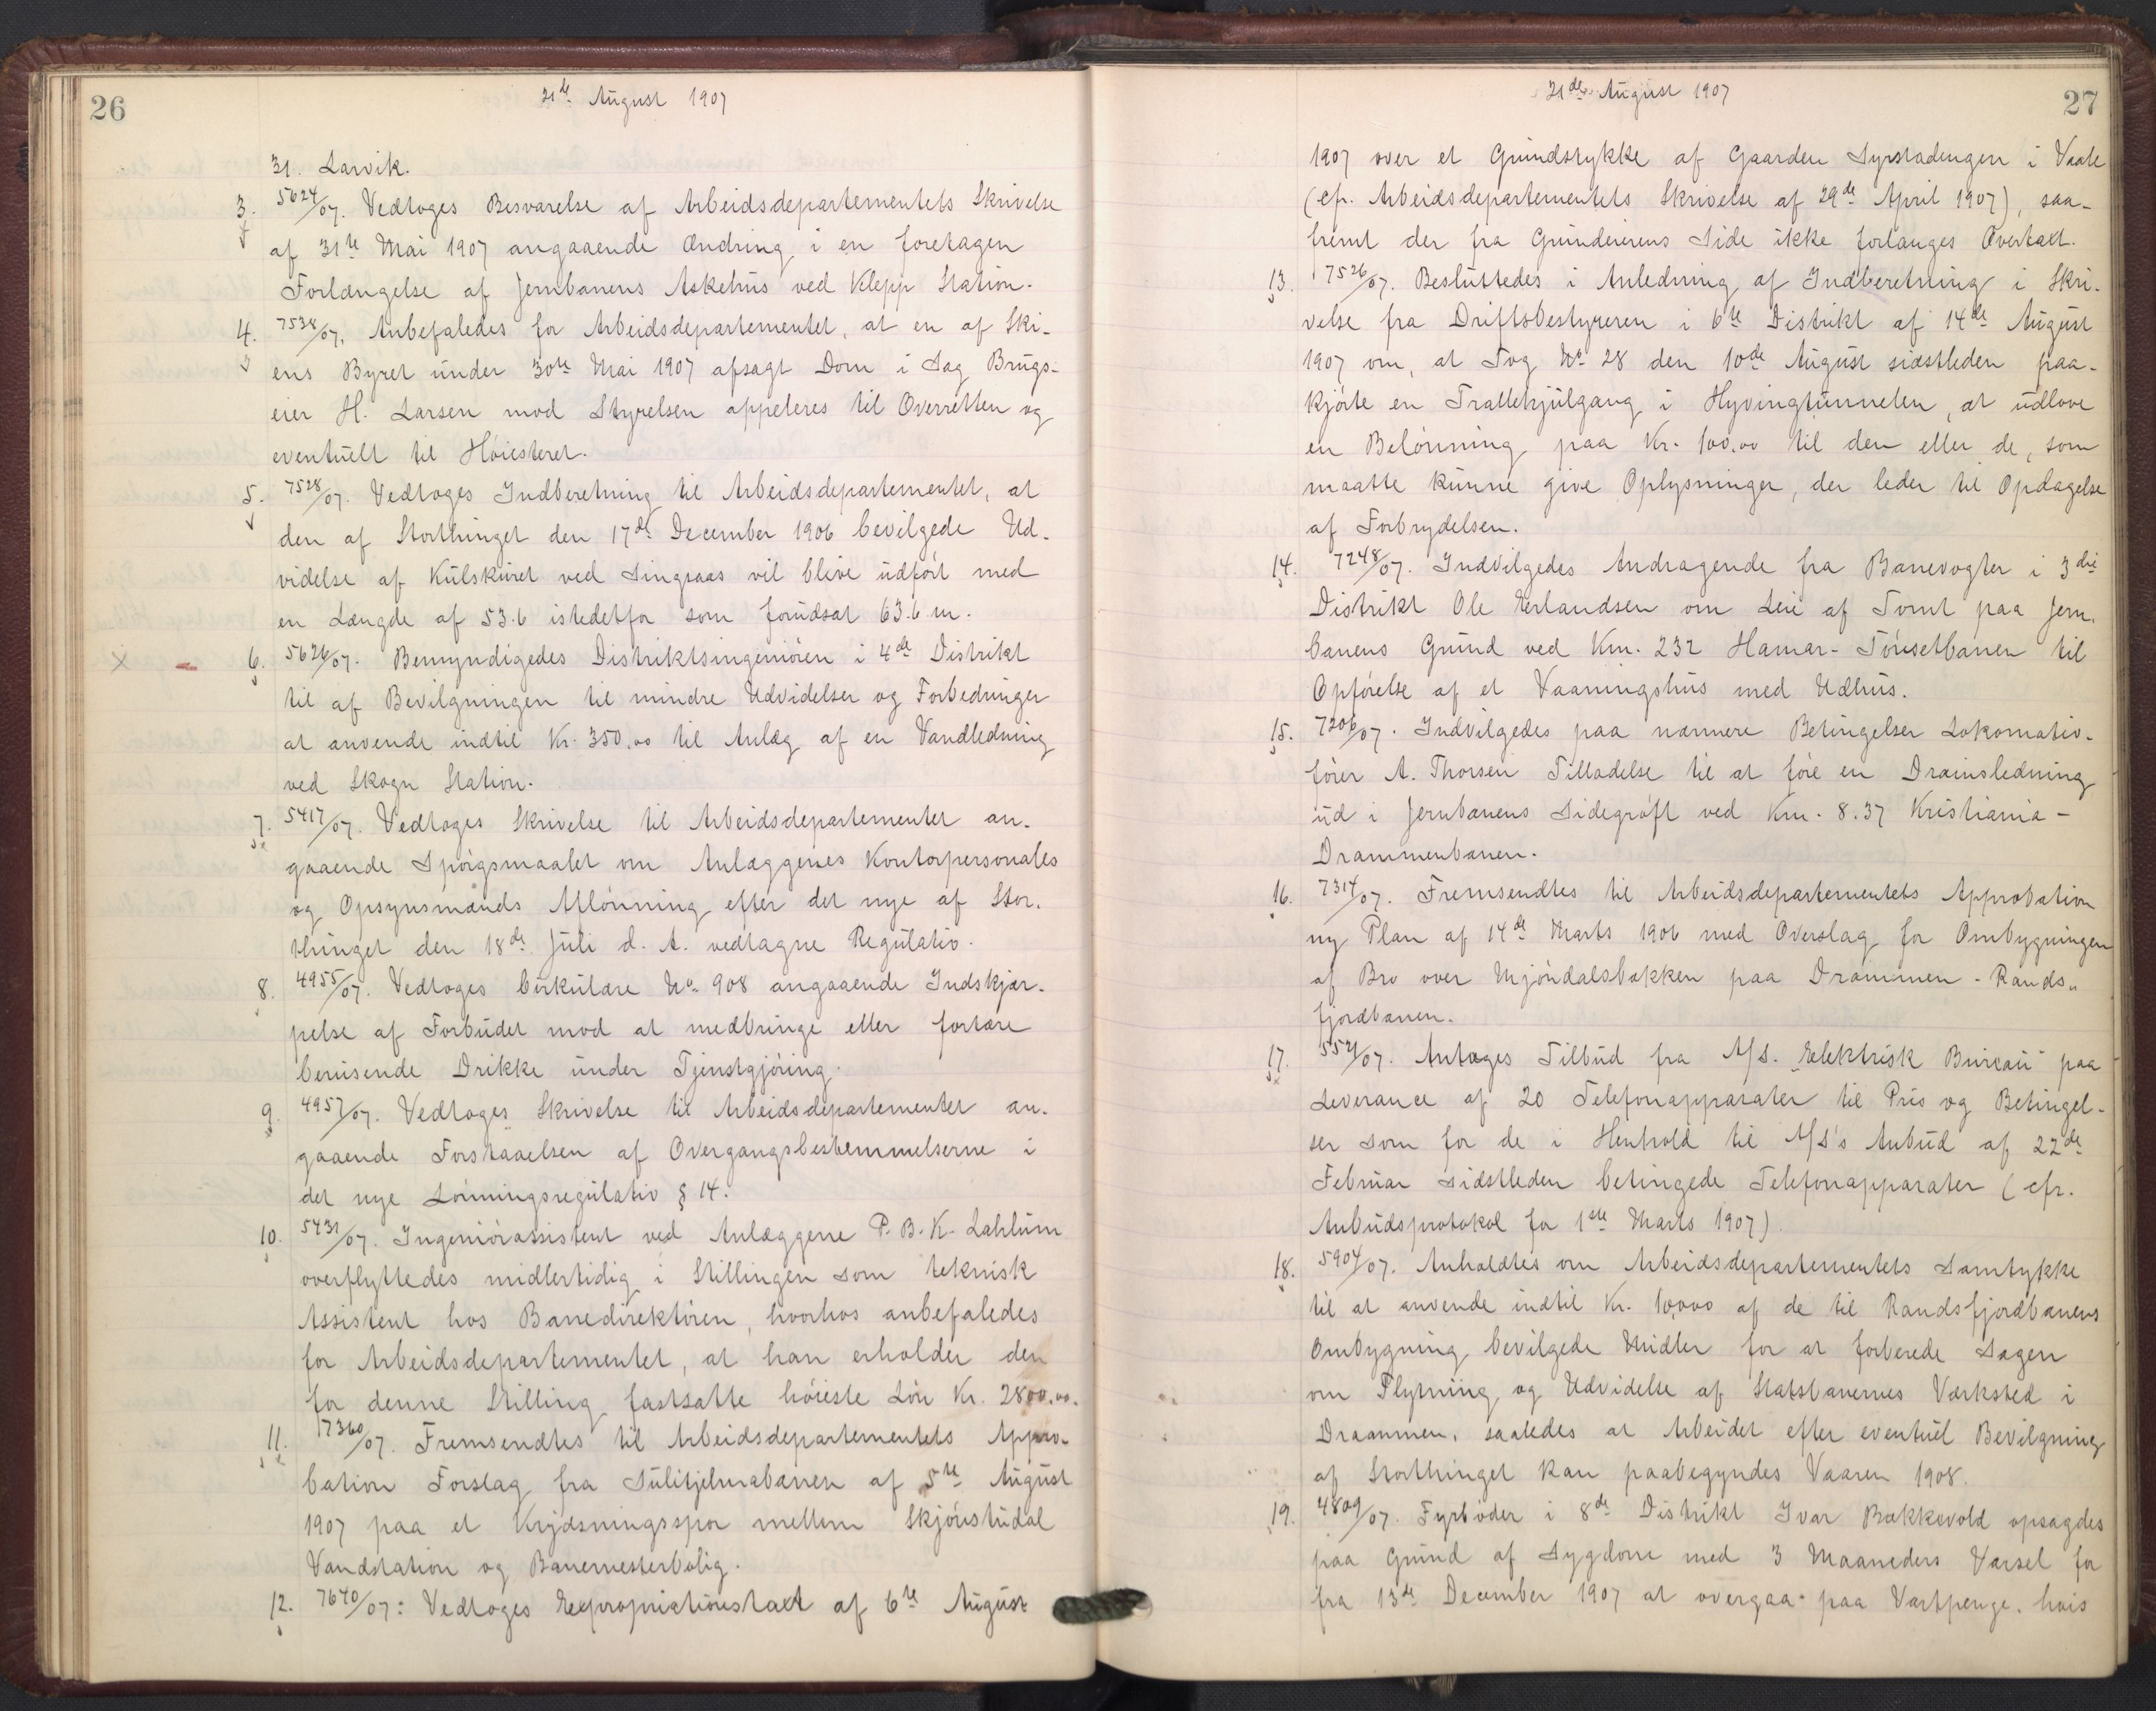 26
21de August 1907
31. Larvik.
3. 5624/07. Vedtoges Besvarelse af Arbeidsdepartementets Skrivelse
af 31te Mai 1907 angaaende Ændring i en foretagen
Forlængelse af Jernbanens Askehus ved Klepp Station.
4. 7538/07. Anbefaledes for Arbeidsdepartementet, at en af Ski-
ens Byret under 30te Mai 1907 afsagt Dom i Sag Brugs-
eier H. Larsen mod Styrelsen appeleres til Overretten og
eventuelt til Høiesteret.
5. 7528/07. Vedtoges Indberetning til Arbeidsdepartementet, at
den af Storthinget den 17de December 1906 bevilgede Ud-
videlse af Kulskuret ved Singsaas vil blive udført med
en Længde af 53.6 istedetfor som forudsat 63.6 m.
6. 5626/07. Bemyndigedes Distriktsingeniøren i 4de Distrikt
til af Bevilgningen til mindre Udvidelser og Forbedringer
at anvende indtil Kr. 350.00 til Anlæg af en Vandledning
ved Skogn Station.
7. 5417/07. Vedtoges Skrivelse til Arbeidsdepartementet an-
gaaende Spørgsmaalet om Anlæggenes Kontorpersonales
og Opsynsmænds Aflønning efter det nye af Stor-
thinget den 18de Juli d. A. vedtagne Regulativ.
8. 4955/07. Vedtoges Cirkulære No. 908 angaaende Indskjær-
pelse af Forbudet mod at medbringe eller fortære
berusende Drikke under Tjenstgjøring.
9. 4957/07. Vedtoges Skrivelse til Arbeidsdepartementet an-
gaaende Forstaaelsen af Overgangsbestemmelserne i
det nye Lønningsregulativ § 14.
10. 5431/07. Ingeniørassistent ved Anlæggene P. B. K. Lahlum
overflyttedes midlertidig i Stillingen som teknisk
Assistent hos Banedirektøren, hvorhos anbefaledes
for Arbeidsdepartementet, at han erholder den
for denne Stilling fastsatte høieste Løn Kr. 2800.00.
11. 7360/07. Fremsendtes til Arbeidsdepartementets Appro-
bation Forslag fra Sulitjelmabanen af 5te August
1907 paa et Krydsningsspor mellem Skjønstudal
Vandstation og Banemesterbolig.
12. 7640/07: Vedtoges Expropriationstaxt af 6te August
27
21de August 1907
1907 over et Grundstykke af Gaarden Syrstadengen i Vaale
(cfr. Arbeidsdepartementets Skrivelse af 29de April 1907), saa-
fremt der fra Grundeierens Side ikke forlanges Overtaxt.
13. 7526/07. Besluttedes i Anledning af Indberetning i Skri-
velse fra Driftsbestyreren i 6te Distrikt af 14de August
1907 om, at Tog No. 28 den 10de August sidstleden paa-
kjørte en Trallehjulgang i Hyvingtunnelen, at udlove
en Belønning paa Kr. 100.00 til den eller de, som
maatte kunne give Oplysninger, der leder til Opdagelse
af Forbrydelsen.
14. 7248/07. Indvilgedes Andragende fra Banevogter i 3die
Distrikt Ole Erlandsen om Leie af Tomt paa Jern-
banens Grund ved Km. 232 Hamar-Tønsetbanen til
Opførelse af et Vaaningshus med Udhus.
15. 7206/07. Indvilgedes paa nærmere Betingelser Lokomotiv-
fører A. Thorsen Tilladelse til at føre en Drænsledning
ud i Jernbanens Sidegrøft ved Km. 8.37 Kristiania-
Drammenbanen.
16. 7314/07. Fremsendtes til Arbeidsdepartementets Approbation
ny Plan af 14de Marts 1906 med Overslag for Ombygningen
af Bro over Mjøndalsbakken paa Drammen-Rands-
fjordbanen.
17. 5521/07. Antoges Tilbud fra A/S. "Elektrisk Bureau" paa
Leverance af 20 Telefonapparater til Pris og Betingel-
ser som for de i Henhold til A/S's Anbud af 22de
Februar sidstleden betingede Telefonapparater (cfr.
Anbudsprotokol for 1ste Marts 1907).
18. 5904/07. Anholdtes om Arbeidsdepartementets Samtykke
til at anvende indtil Kr. 10,000 af de til Randsfjordbanens
Ombygning bevilgede Midler for at forberede Sagen
om Flytning og Udvidelse af Statsbanernes Værksted i
Drammen, saaledes at Arbeidet efter eventuel Bevilgning
af Storthinget kan paabegyndes Vaaren 1908.
19. 4809/07. Fyrbøder i 8de Distrikt Ivar Bækkevold opsagdes
paa Grund af Sygdom med 3 Maaneders Varsel for
fra 13de December 1907 at overgaa paa Vartpenge, hvis